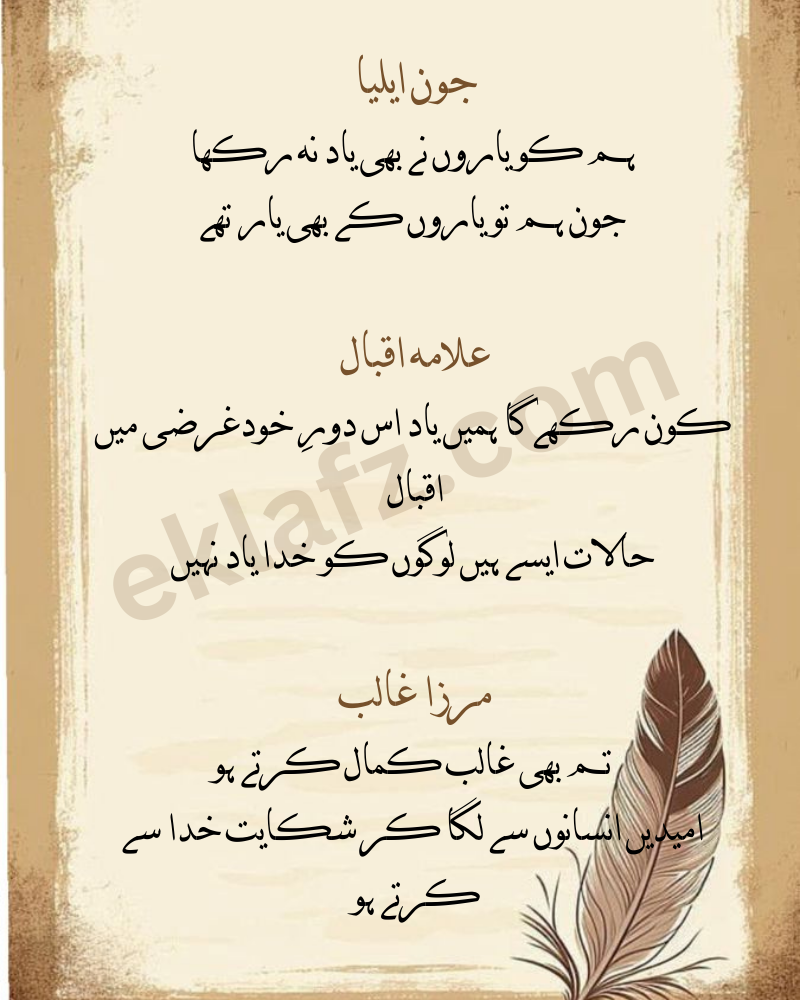 جون ایلیا
ہم کو یاروں نے بھی یاد نہ رکھا
جون ہم تو یاروں کے بھی یار تھے
علامہ اقبال
کون رکھے گا ہمیں یاد اس دورِ خود غرضی میں
اقبال
حالات ایسے ہیں لوگوں کو خدا یاد نہیں
eklafz.com
مرزا غالب
تم بھی غالب کمال کرتے ہو
امیدیں انسانوں سے لگا کر شکایت خدا سے
کرتے ہو